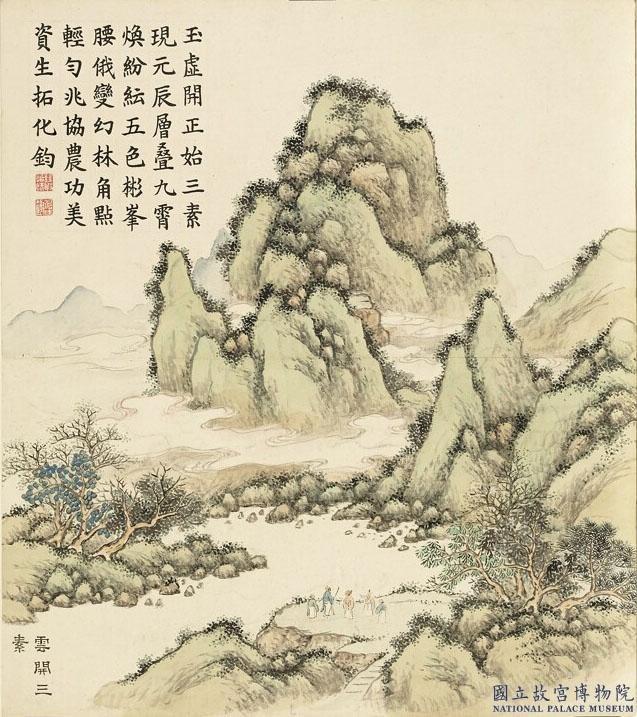 玉虛開正始三素
現元辰層疊九霄
煥紛紜五色彬峯
腰俄變幻林角點
輕勻兆協農功美
資生拓化鈞
雲開三
素
國立故宮博物院
NATIONAL PALACE MUSEUM